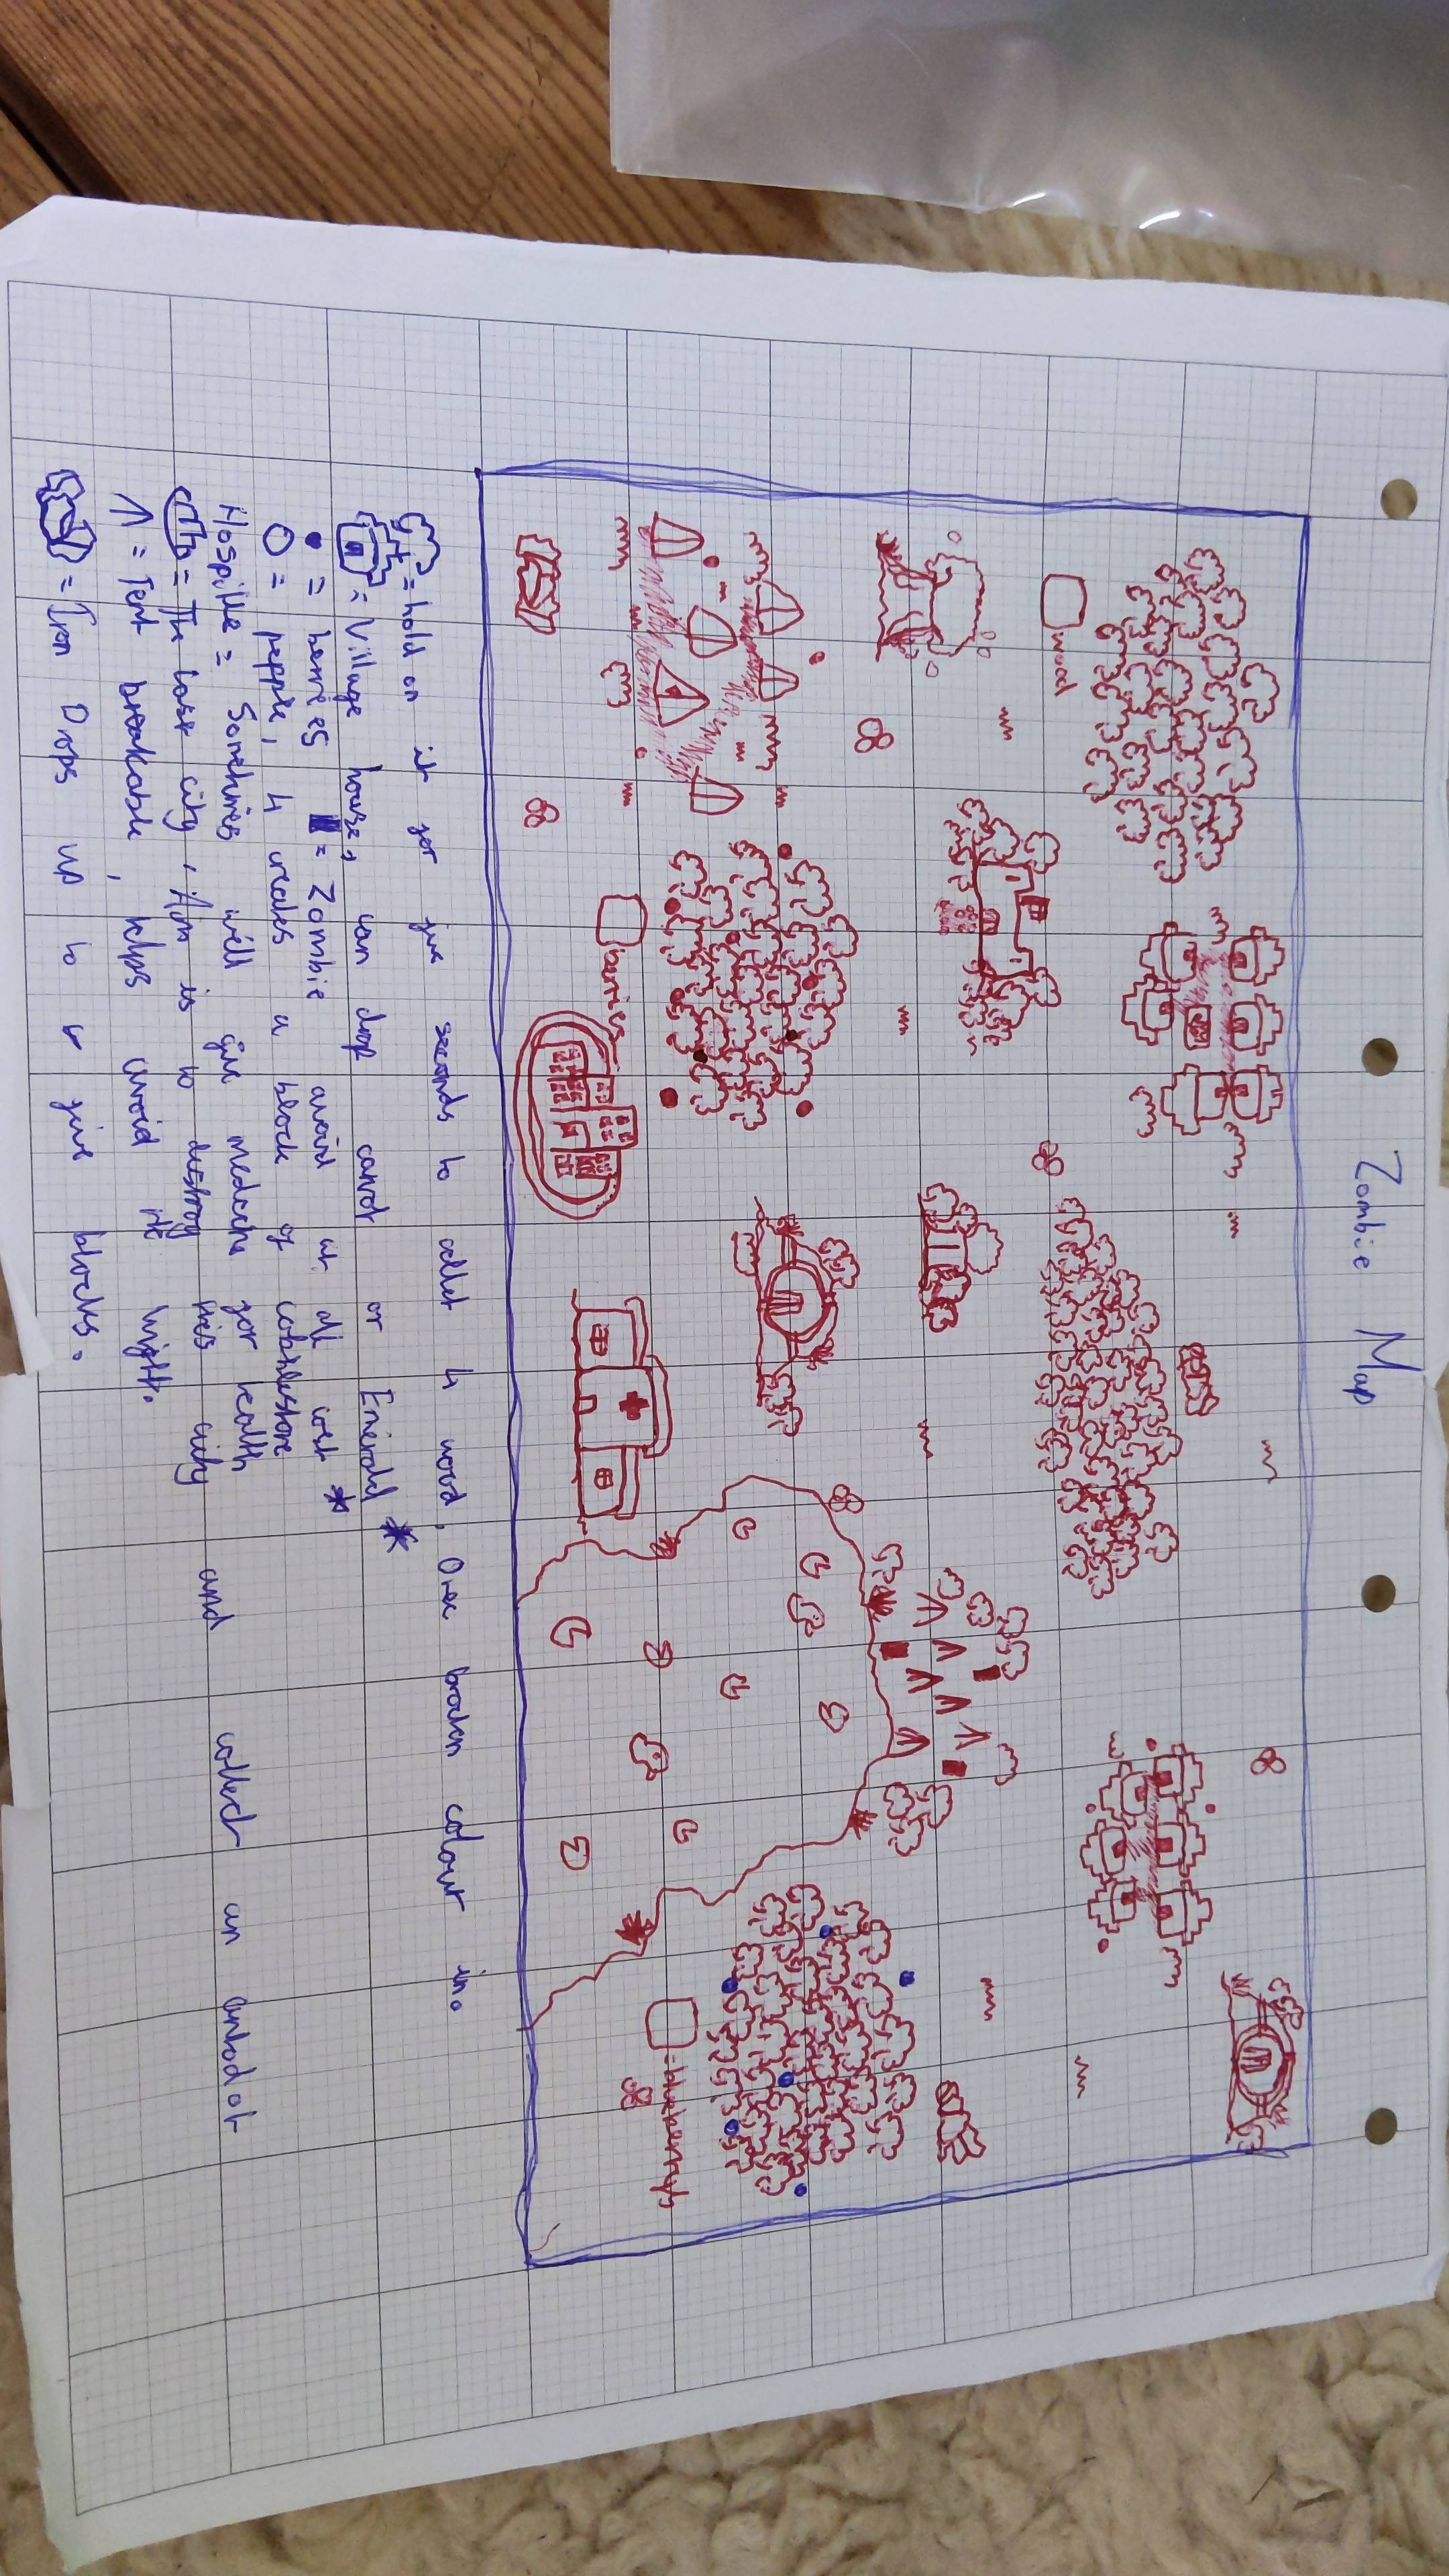 Zombie Map
wood
berries
blueberrys
= hold on it for five seconds to collet 4 wood. One broken colour in.
= Village house, can drop carrot or Emerald *
= berries = Zombie avoid at all cost *
= pepple, 4 creates a block of cobblestone
Hospille = Somtimes will give medecine for health
= The last city, Aim is to destroy this city and collect an antodot
= Tent breakable, helps avoid the night.
= Iron Drops up to 4 five blocks.